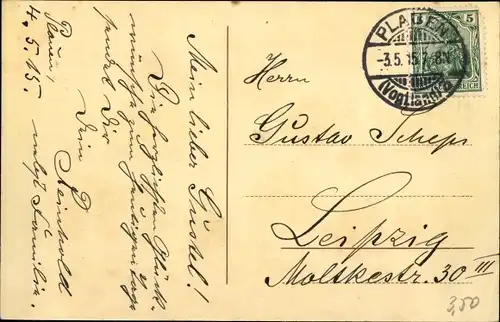 Mein lieber Gustel!
Die herzlichsten Glück-
wünsche zum heutigen Tage
sendet Dir
Dein
Reinhold
nebst Familie.
Plauen,
4.5.15.
PLAUEN
-3.5.15. 7-8N
(Vogtland)
5
REICH
Herrn
Gustav Scheps
Leipzig
Moltkestr. 30 III
3,50